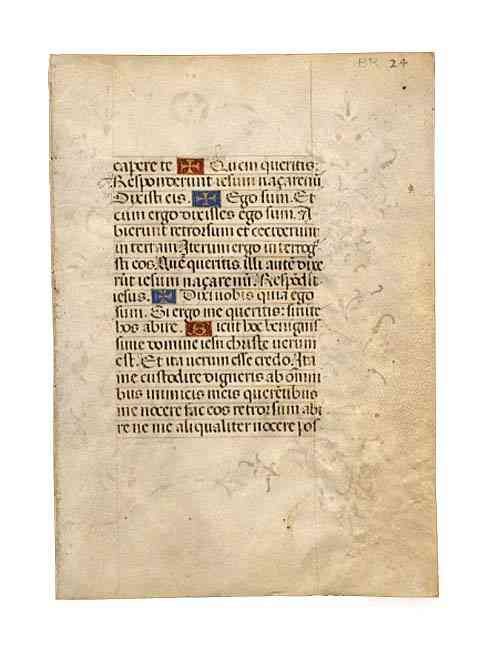 BR 24
capere te ✠ Quem queritis:
Responderunt iesum naçarenũ.
Dixisti eis. ✠ Ego sum. Et
cum ergo dixisses ego sum. A
bierunt retrorsum et ceciderunt
in terram. Iterum ergo interrog
sti eos. Quẽ queritis. illi autẽ dixe
rũt iesum naçarenũ. Respõdit
iesus. ✠ Dixi uobis quia ego
sum. Si ergo me queritis: sinite
hos abire. Sicut hoc benignis
sime domine iesu christe uerum
est. Et ita uerum esse credo. Ita
me custodire digneris ab omni
bus inimicis meis querẽtibus
me nocere fac eos retrorsum abi
re ne me aliqualiter nocere pos